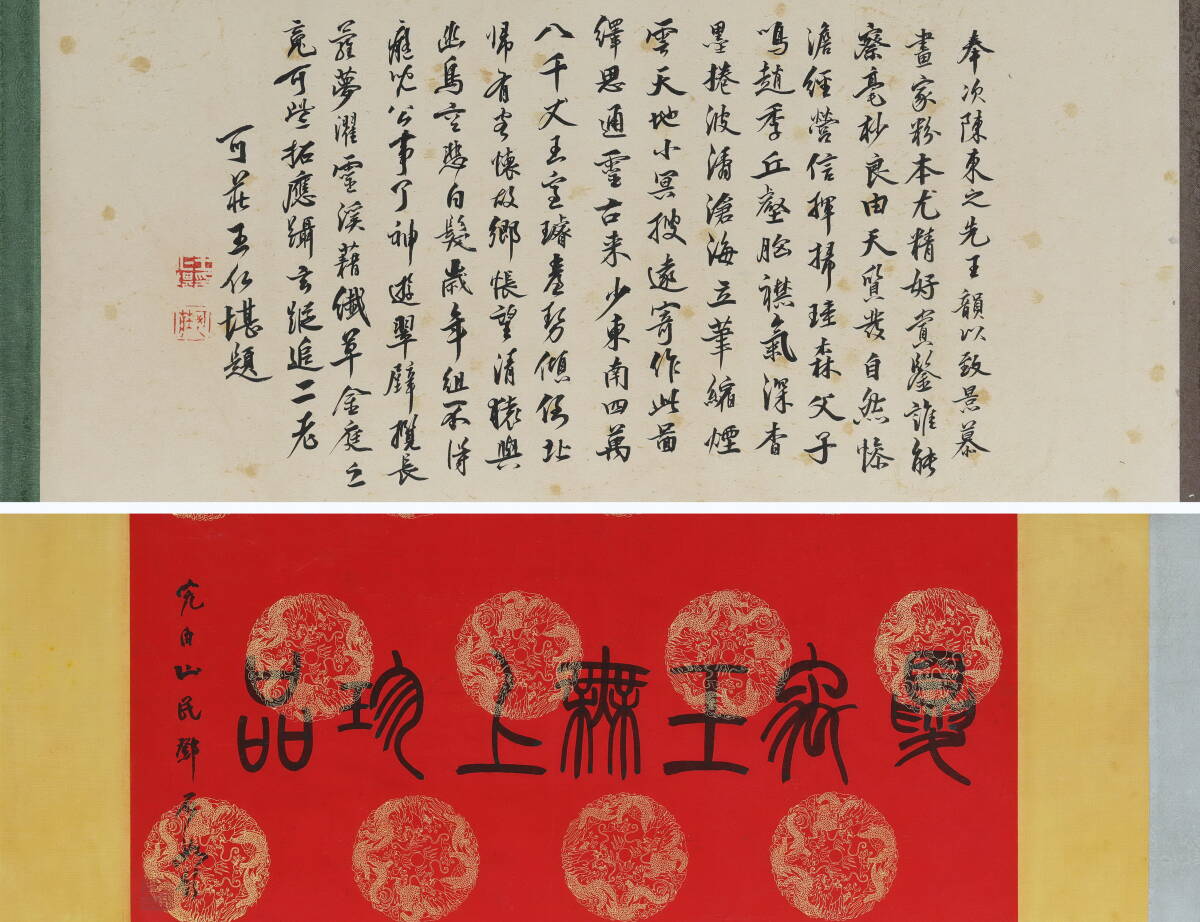 奉次陳東之先王韻以致景慕
畫家粉本尤精好賞鑒誰能
察毫杪良由天質發自然慘
澹經營信揮掃 森父子
鳴趙季丘壑胸襟氣深杳
墨捲波濤滄海立筆縮煙
雲天地小冥搜遠寄作此圖
繹思通靈古來少東南四萬
八千丈玉室璿臺勢傾倒北
歸有客懷故鄉悵望清猿與
幽鳥空悲白髮歲年徂不得
癡兒公事了神遊翠壁攬長
蘿夢濯靈溪藉纖草金庭之
竟可些拓應躡玄蹤追二老
可莊王仁堪題
王 無上珍品
完白山民鄧石如題